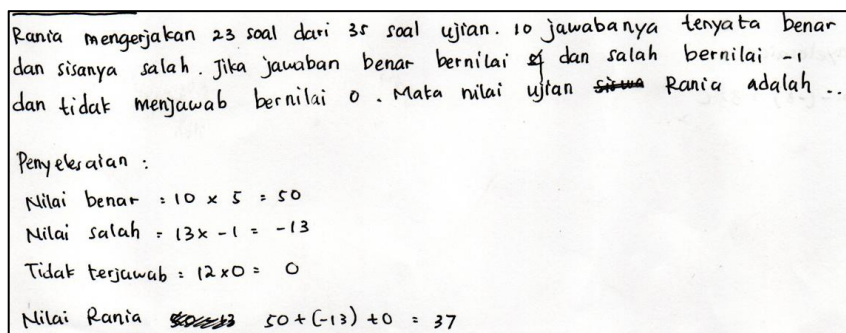 Rania mengerjakan 23 soal dari 35 soal ujian. 10 jawabanya tenyata benar
dan sisanya salah. Jika jawaban benar bernilai dan salah bernilai -1
dan tidak menjawab bernilai 0. Maka nilai ujian Rania adalah ..
Penyelesaian :
Nilai benar : 10 x 5 = 50
Nilai salah = 13x -1 = -13
Tidak terjawab = 12x0 = 0
Nilai Rania 50+(-13) +0 = 37